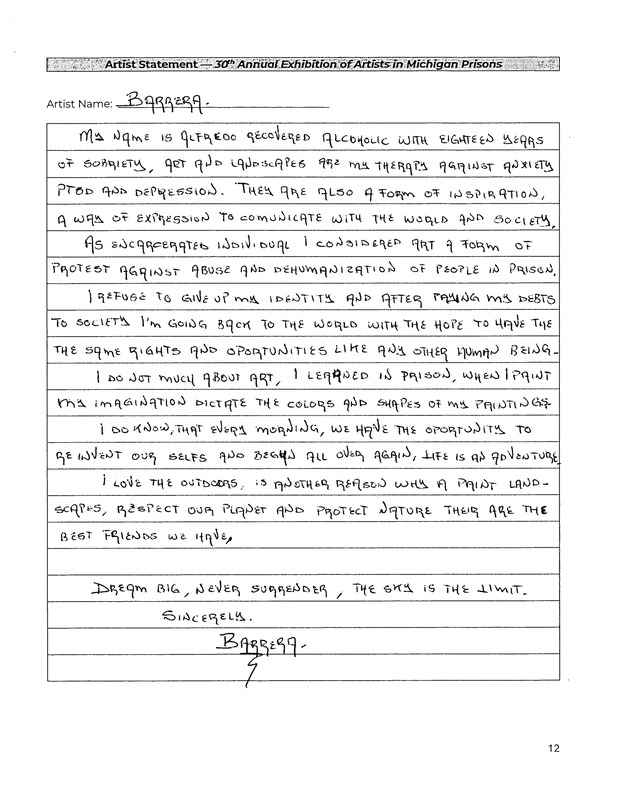 Artist Statement — 30th Annual Exhibition of Artists in Michigan Prisons
Artist Name: BARRERA.
MY NAME IS ALFREDO RECOVERED ALCOHOLIC WITH EIGHTEEN YEARS
OF SOBRIETY, ART AND LANDSCAPES ARE MY THERAPY AGAINST ANXIETY
PTSD AND DEPRESSION. THEY ARE ALSO A FORM OF INSPIRATION,
A WAY OF EXPRESSION TO COMUNICATE WITH THE WORLD AND SOCIETY.
AS ENCARCERATED INDIVIDUAL I CONSIDERED ART A FORM OF
PROTEST AGAINST ABUSE AND DEHUMANIZATION OF PEOPLE IN PRISON.
I REFUSE TO GIVE UP MY IDENTITY AND AFTER PAYING MY DEBTS
TO SOCIETY I'M GOING BACK TO THE WORLD WITH THE HOPE TO HAVE THE
THE SAME RIGHTS AND OPORTUNITIES LIKE ANY OTHER HUMAN BEING-
I DO NOT MUCH ABOUT ART, I LEARNED IN PRISON, WHEN I PAINT
MY IMAGINATION DICTATE THE COLORS AND SHAPES OF MY PAINTINGS.
I DO KNOW, THAT EVERY MORNING, WE HAVE THE OPORTUNITY TO
RE INVENT OUR SELFS AND BEGAN ALL OVER AGAIN, LIFE IS AN ADVENTURE
I LOVE THE OUTDOORS, IS ANOTHER REASON WHY A PAINT LAND-
SCAPES, RESPECT OUR PLANET AND PROTECT NATURE THEIR ARE THE
BEST FRIENDS WE HAVE,
DREAM BIG, NEVER SURRENDER, THE SKY IS THE LIMIT.
SINCERELY.
BARRERA.
12